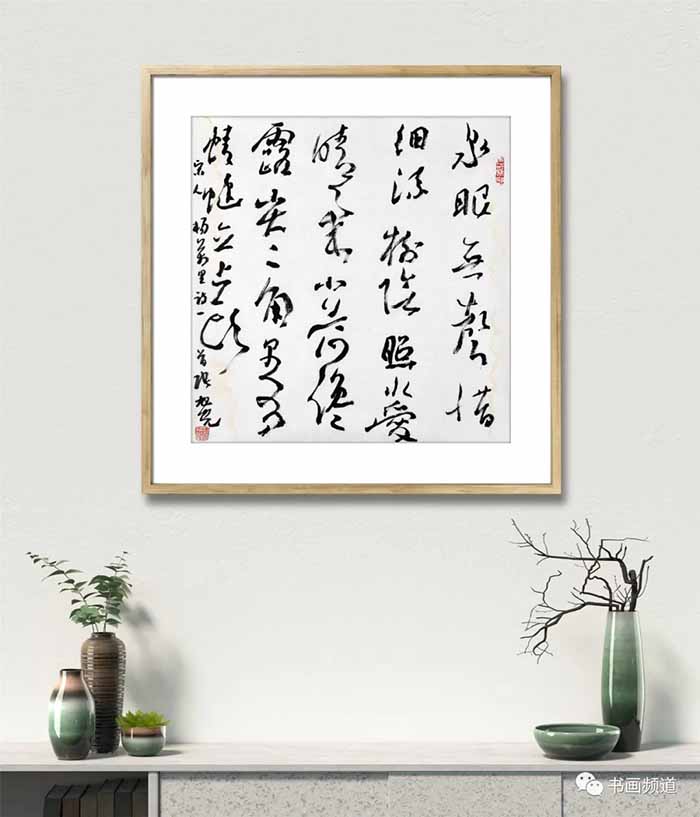 泉眼無聲惜
細流樹陰照水愛
晴柔小荷纔
露尖々角早有
蜻蜓立上頭
宋人楊萬里詩一首張旭光
书画频道